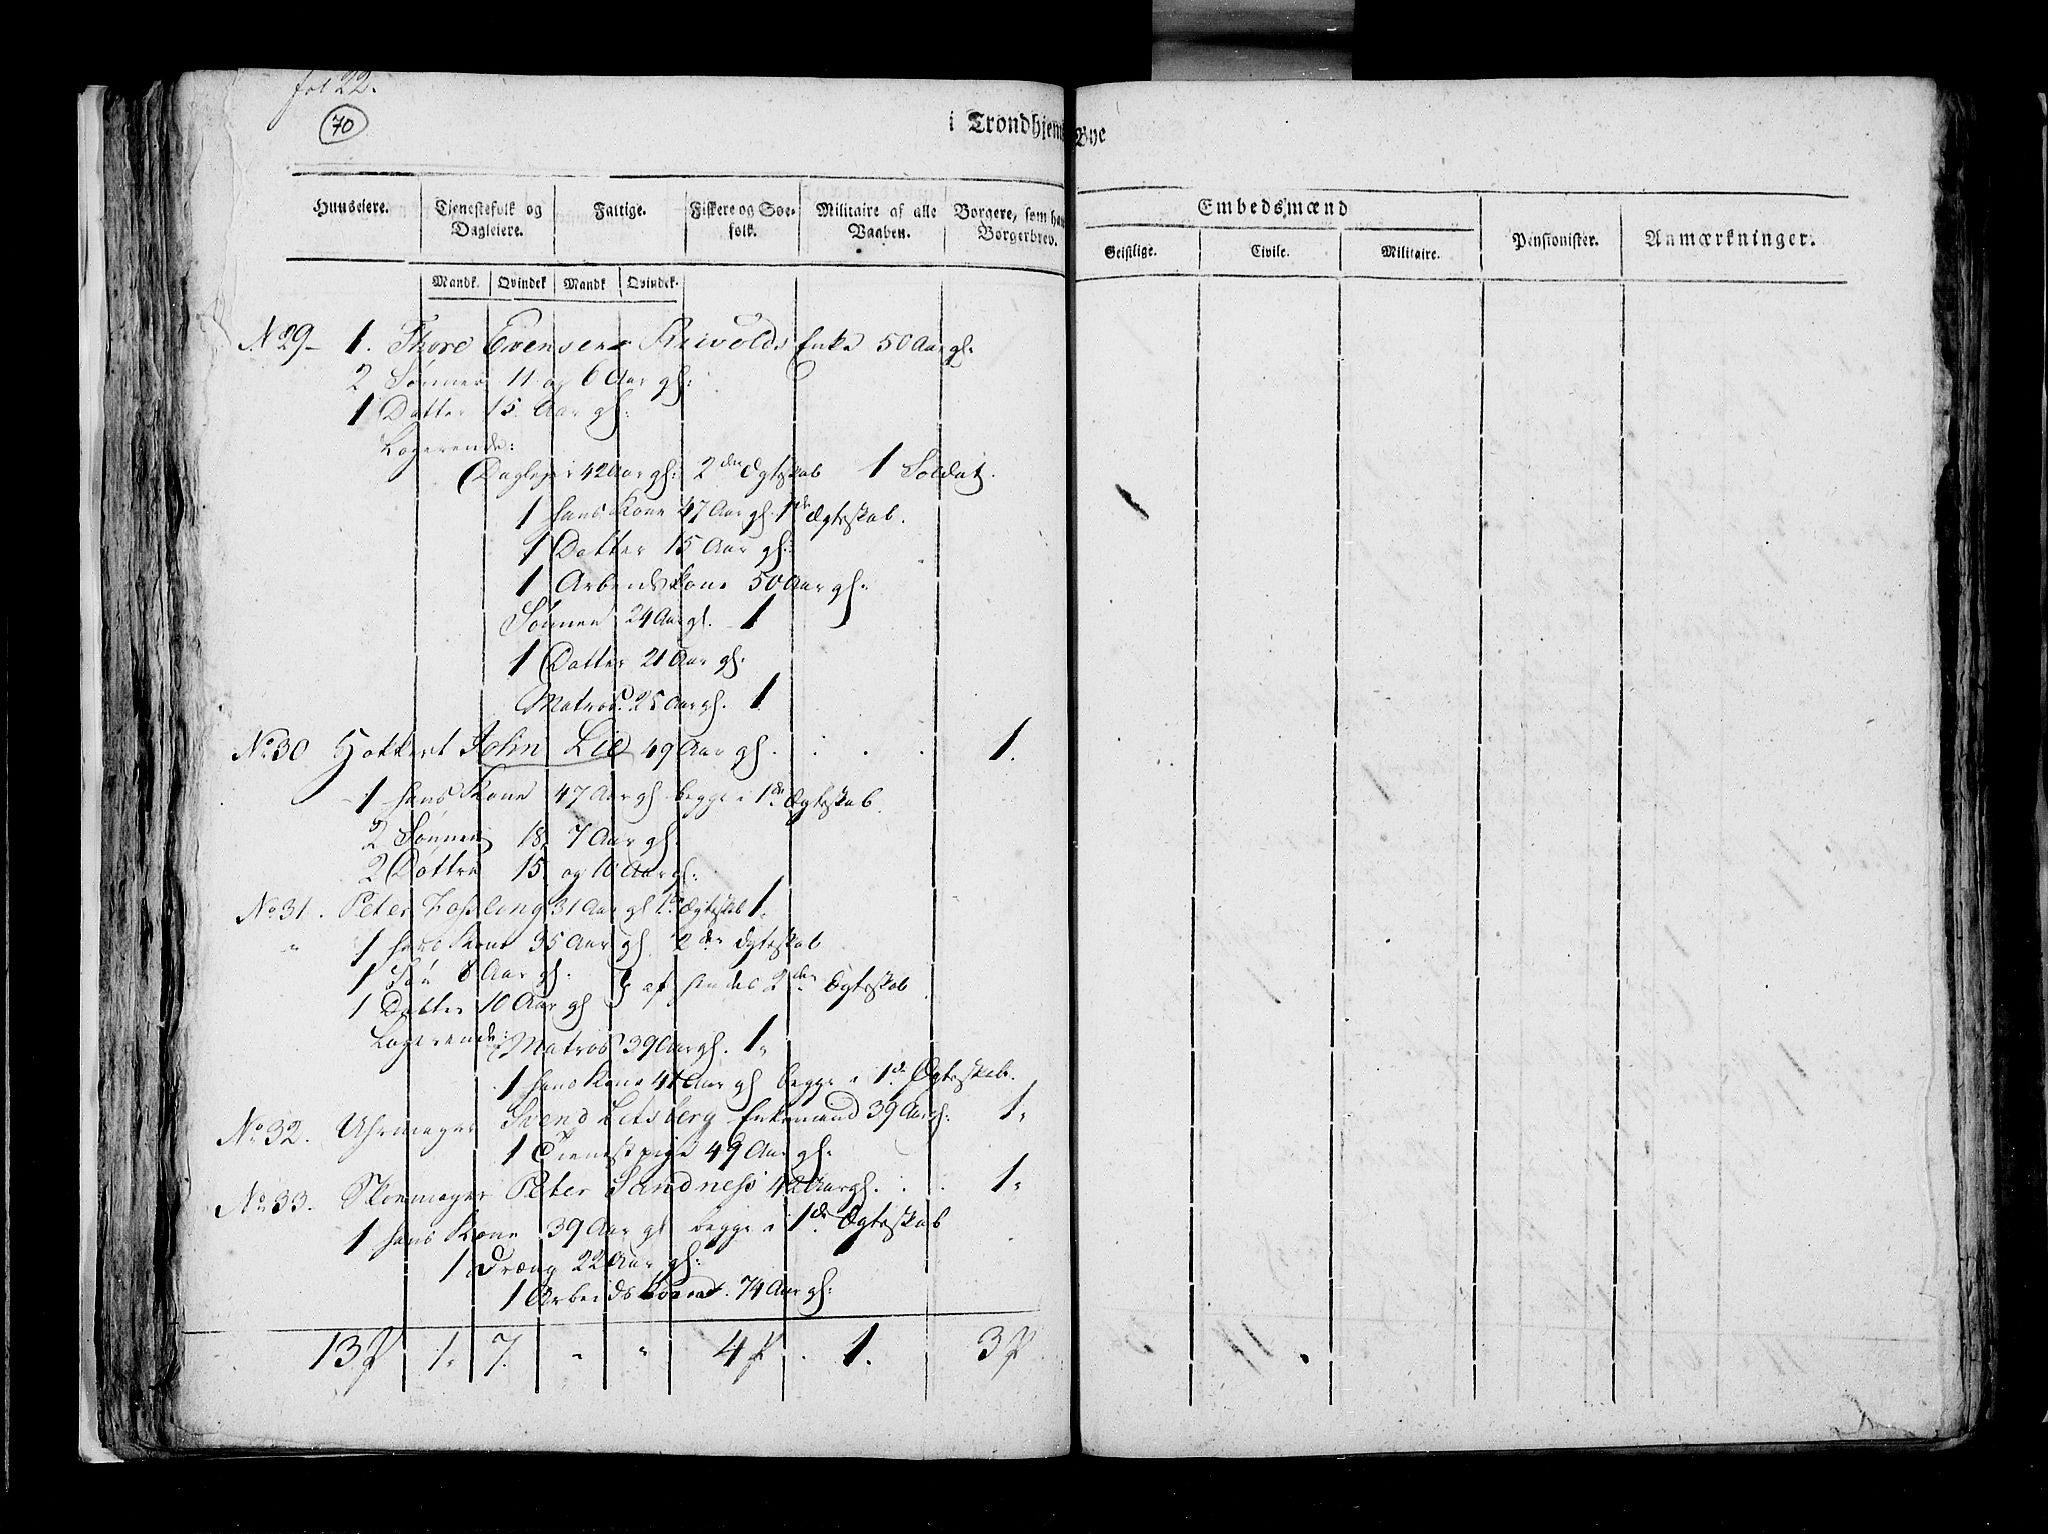 fol 22.
70
i Trondhjems Bye
Huuseiere.
Tjenestefolk og Dagleiere.
Fattige.
Fiskere og Søefolk.
Militaire af alle Vaaben.
Borgere, som have Borgerbrev.
Embedsmænd
Pensionister.
Anmærkninger.
Geistlige.
Civile.
Militaire.
Mandk.
Qvindek
Mandk
Qvindek.
No 29 1. Thore Evensens Enke 50 Aar gl:
2 Sønner 11 og 6 Aar gl:
1 Datter 15 Aar gl:
Logerende:
Dagleier 42 Aar gl: 2den Ægteskab 1 Soldat.
1 hans Kone 47 Aar gl. 1de Ægteskab.
1 Datter 15 Aar gl:
1 Arbeidskone 50 Aar gl:
Sønnen 24 Aar gl. 1
1 Datter 21 Aar gl:
Matros 25 Aar gl. 1
No. 30 John Lie 49 Aar gl. 1.
1 hans Kone 47 Aar gl begge i 1de Ægteskab.
2 Sønner 18, 7 Aar gl:
2 Døttre 15 og 10 Aar gl:
No. 31. Peter 31 Aar gl 1de Ægteskab 1.
" 1 hans Kone 35 Aar gl. 2den Ægteskab
1 Søn 8 Aar gl.
1 Datter 10 Aar gl } af hendes 2den Ægteskab
Logerende: Matros 39 Aar gl. 1.
1 hans Kone 41 Aar gl begge i 1de Ægteskab.
No. 32. Uhrmager Svend Enkemand 39 Aar gl: 1.
1 Tienestpige 49 Aar gl:
No. 33. Skoemager Peter Sandness 42 Aar gl. 1.
1 hans Kone 39 Aar gl begge i 1de Ægteskab
1 Dræng 22 Aar gl:
1 Arbeidskone 74 Aar gl:
13 1. 7. " " 4 1. 3